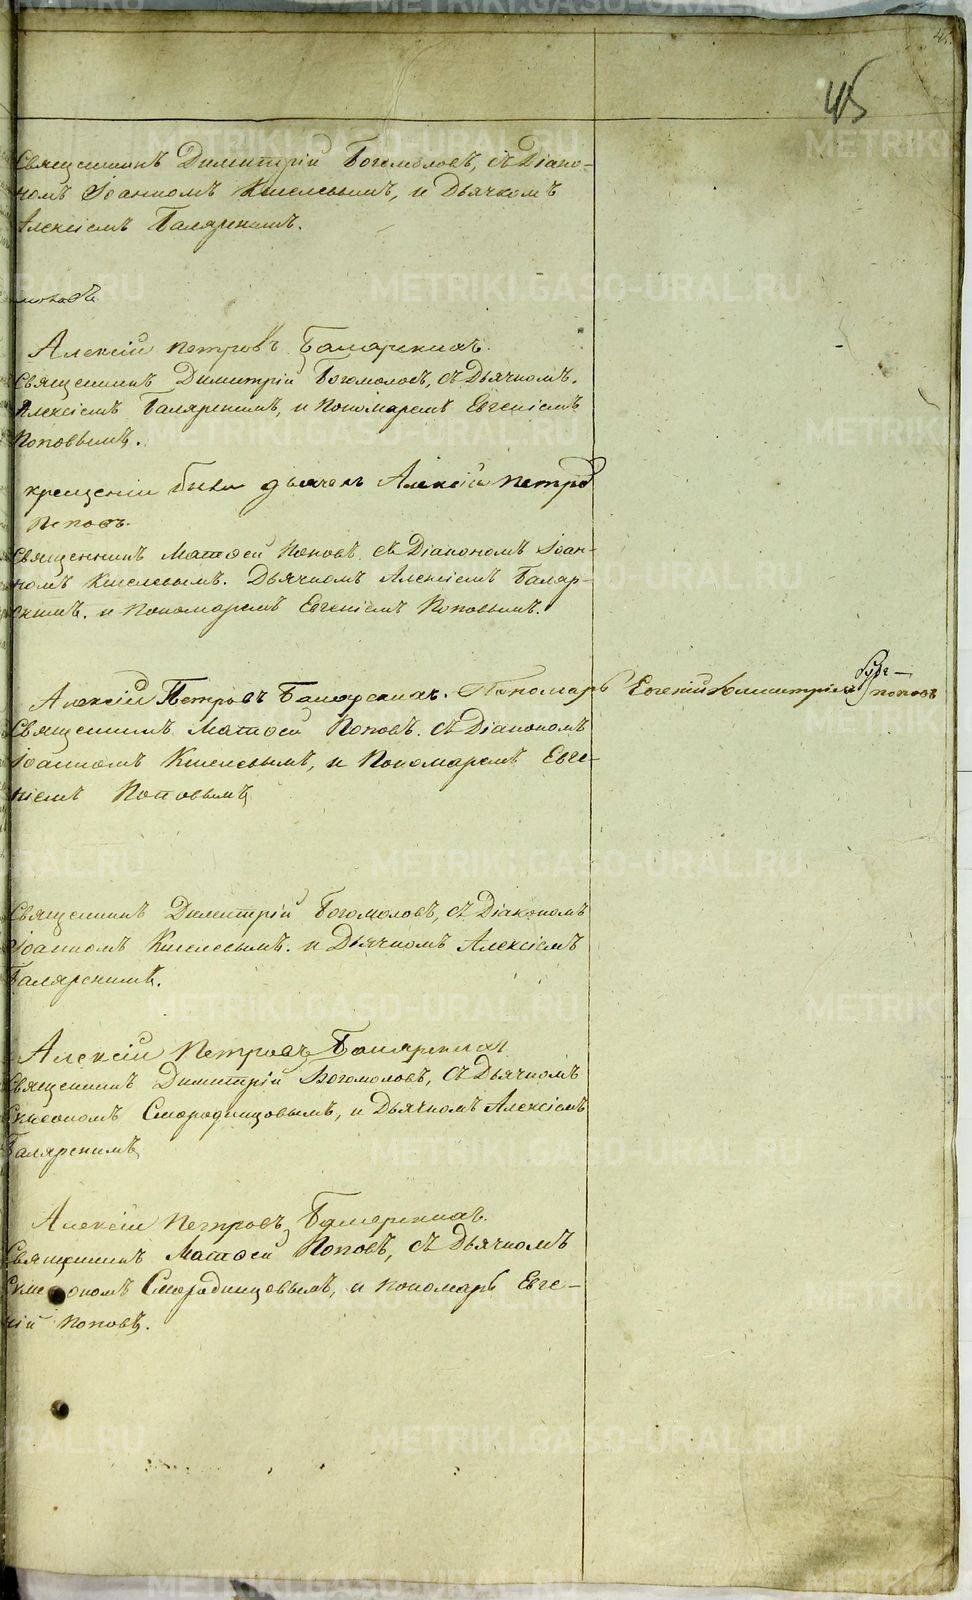 45
Священникъ Димитрій Богомоловъ, съ Діако-
номъ Іоанномъ Киселевымъ, и Дьячкомъ
Алексіемъ Балярскимъ.
Алексій Петровъ
Священникъ Димитрій Богомоловъ, съ Дьячкомъ.
Алексіемъ Балярскимъ, и Пономаремъ Евгеніемъ
Поповымъ.
крещеніи были дьячекъ Алексій Петро
Поповъ.
Священникъ Матѳей Поповъ. съ Діакономъ Іоан-
номъ Киселевымъ. Дьячкомъ Алексіемъ Баляр-
скимъ. и Пономаремъ Евгеніемъ Поповымъ.
Алексій Петровъ Пономарь Евгеній Димитріевъ Поповъ
Священникъ Матѳей Поповъ. съ Діакономъ
Іоанномъ Киселевымъ, и Пономаремъ Евге-
ніемъ Поповымъ
Священникъ Димитрій Богомоловъ, съ Діакономъ
Іоанномъ Киселевымъ. и Дьячкомъ Алексіемъ
Балярскимъ.
Алексій Петровъ
Священникъ Димитрій Богомоловъ, съ Дьячкомъ
Симеономъ Смородинцовымъ, и Дьячкомъ Алексіемъ
Балярскимъ
Алексій Петровъ
Священникъ Матѳей Поповъ, съ Дьячкомъ
Симеономъ Смородинцовымъ, и пономарь Евге-
ній Поповъ.
METRIKI.GASO-URAL.RU